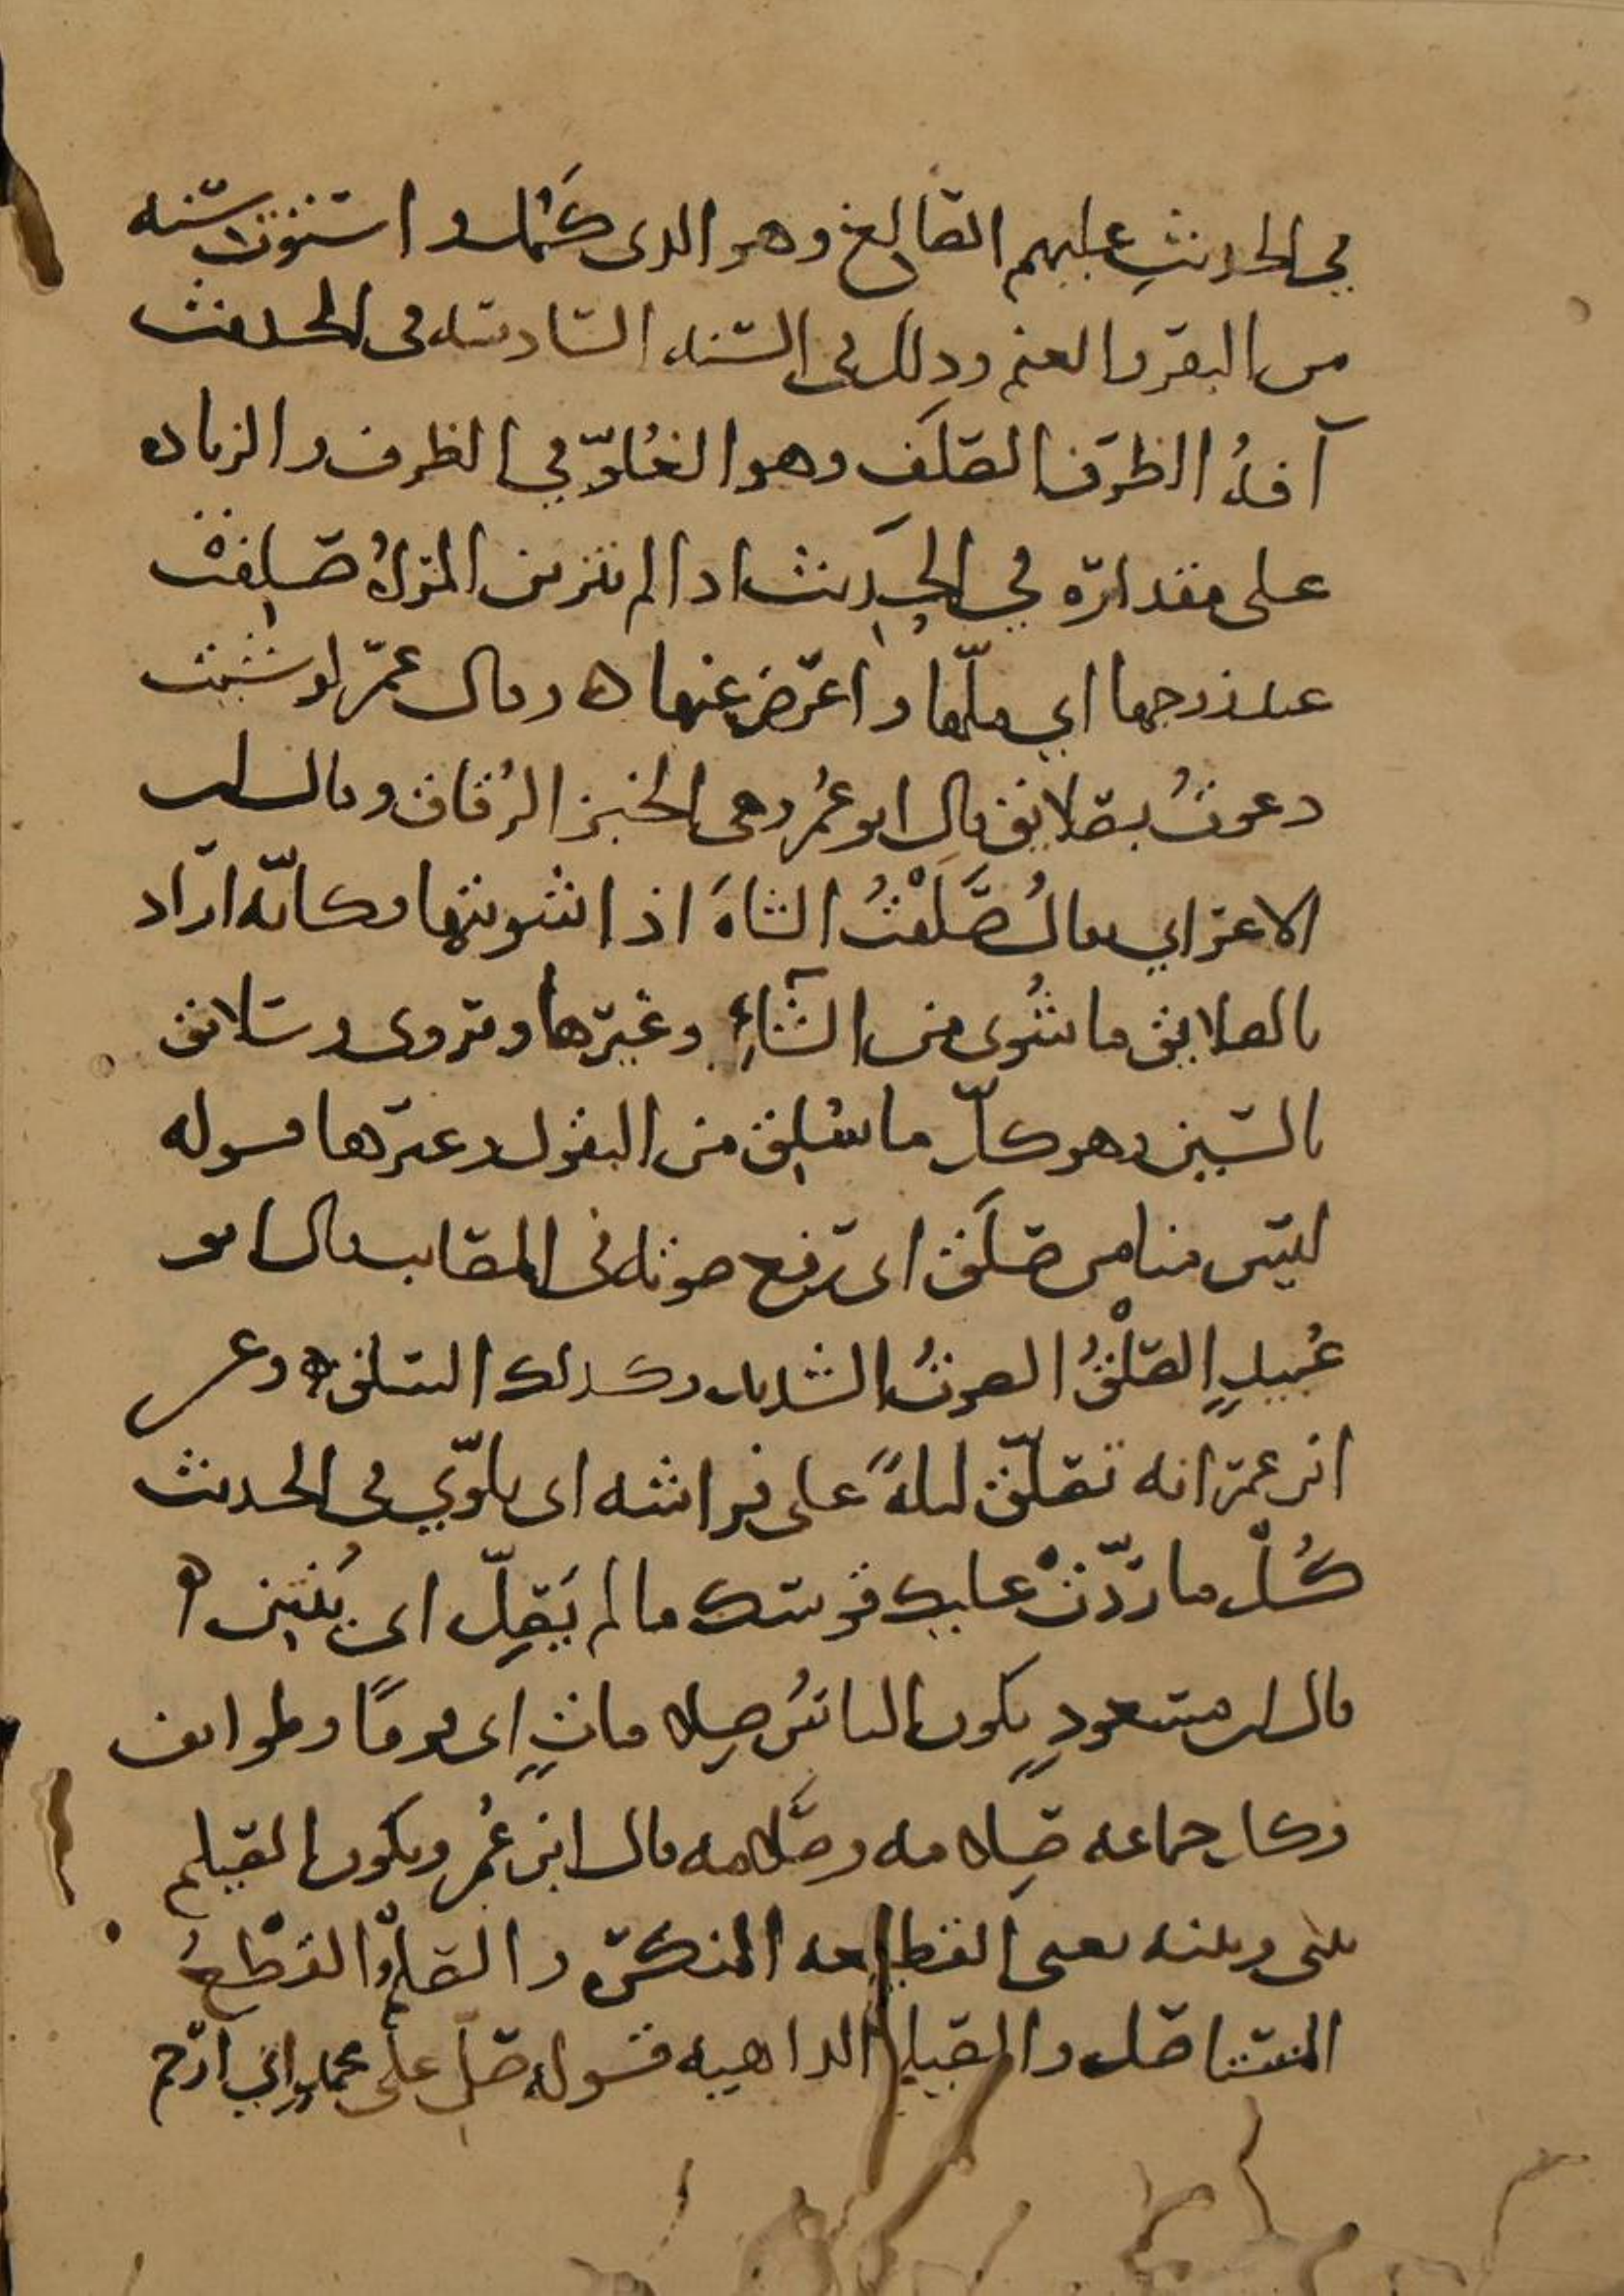 في الحديث عليهم الصالغ وهو الذي كمل واستوت سنه
من البقر والغنم وذلك في السنه السادسه في الحديث
آفة الظرف الصلف وهو الغلو في الظرف والزياده
على مقداره في الحديث اذا لم تتزين المرأة صلفت
عند زوجها اي ملها واعرض عنها ه وقال عمر لو شئت
دعوت بصلايق قال ابو عمر وهي الخبز الرقاق وقال ابن
الاعرابي يقال صلقت الشاة اذا شويتها وكأنه اراد
بالصلايق ما شوي من الشاء وغيرها ويروى وسلائق
بالسين وهو كل ما سلق من البقول وغيرها قوله
ليس منا من صلق اي رفع صوته في المصايب قال ابو
عبيد الصلق الصوت الشديد وكذلك السلق ه وعن
ابن عمر انه تصلق ليلة على فراشه اي تلوى في الحديث
كل ما ردت عليك قوسك ما لم يصل اي ينتن ه
قال ابن مسعود يكون الناس صلامات اي فرقا وطوايف
وكل جماعه صلامه وصلامه قال ابن عمر ويكون الصيلم
بيني وبينه يعني القطيعه المنكره والصلم القطع
المستاصل والصيلم الداهيه قوله صل على محمد اي ارحم